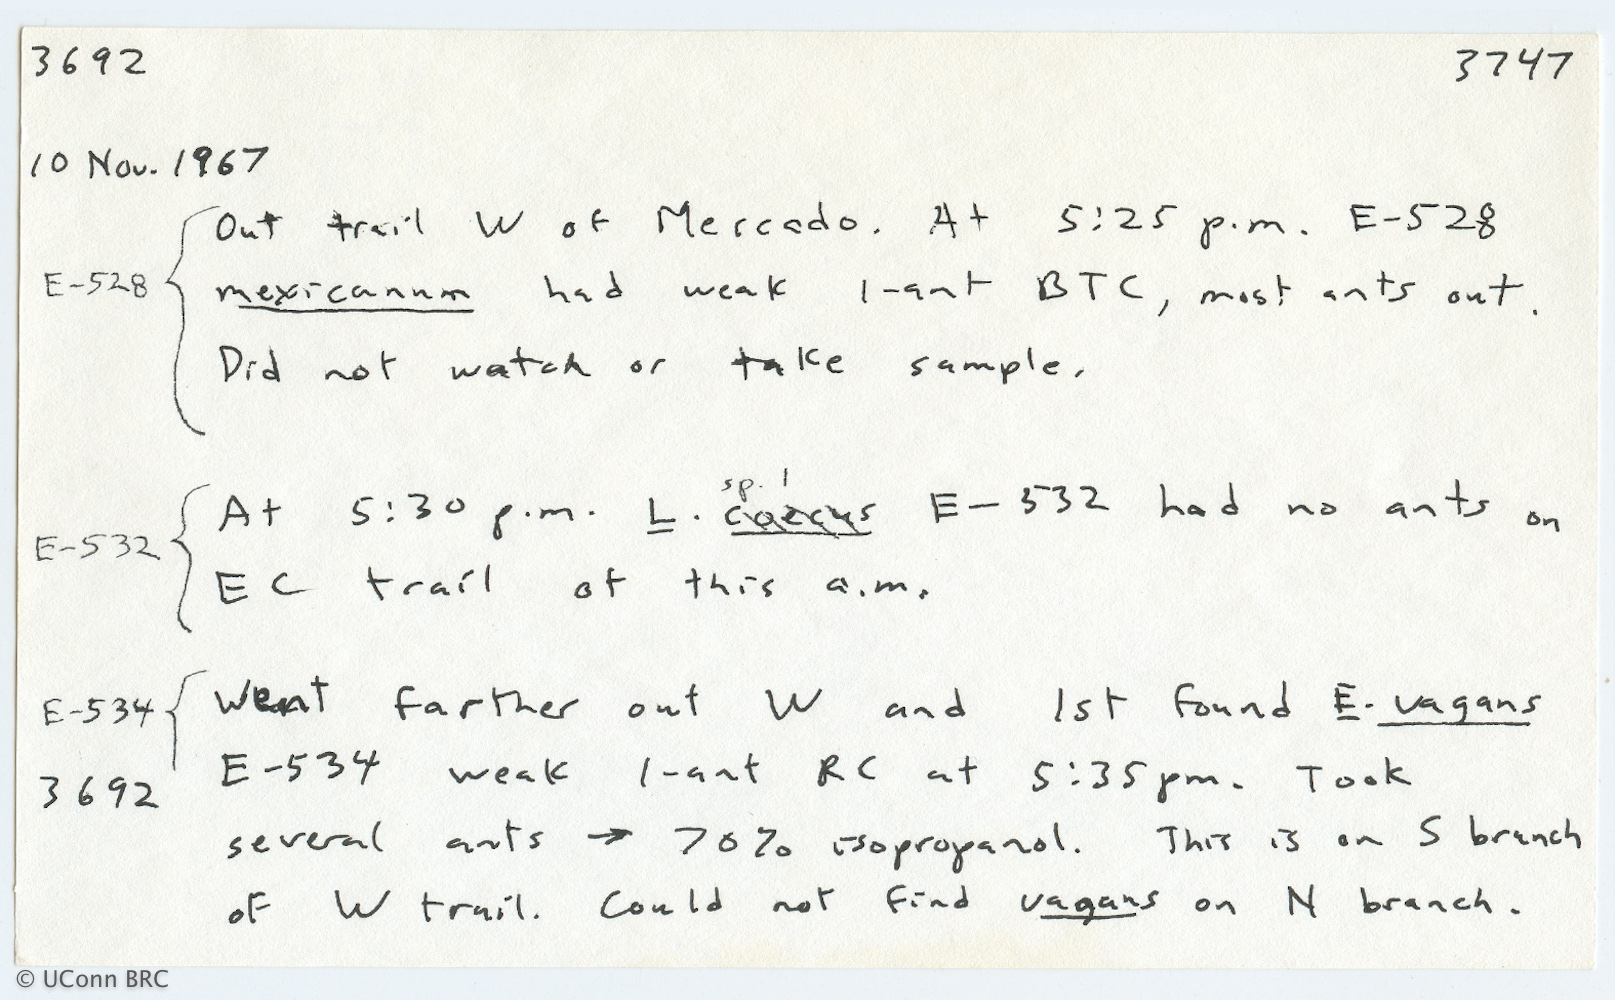 3692 3747
10 Nov. 1967
Out trail W of Mercado. At 5:25 p.m. E-528
E-528 mexicanum had weak 1-ant BTC, most ants out.
Did not watch or take sample.
sp. 1
At 5:30 p.m. L. caecus E-532 had no ants on
E-532
EC trail of this a.m.
E-534 Went farther out W and 1st found E. vagans
E-534 weak 1-ant RC at 5:35pm. Took
3692
several ants → 70% isopropanol. This is on S branch
of W trail. Could not find vagans on N branch.
© UConn BRC